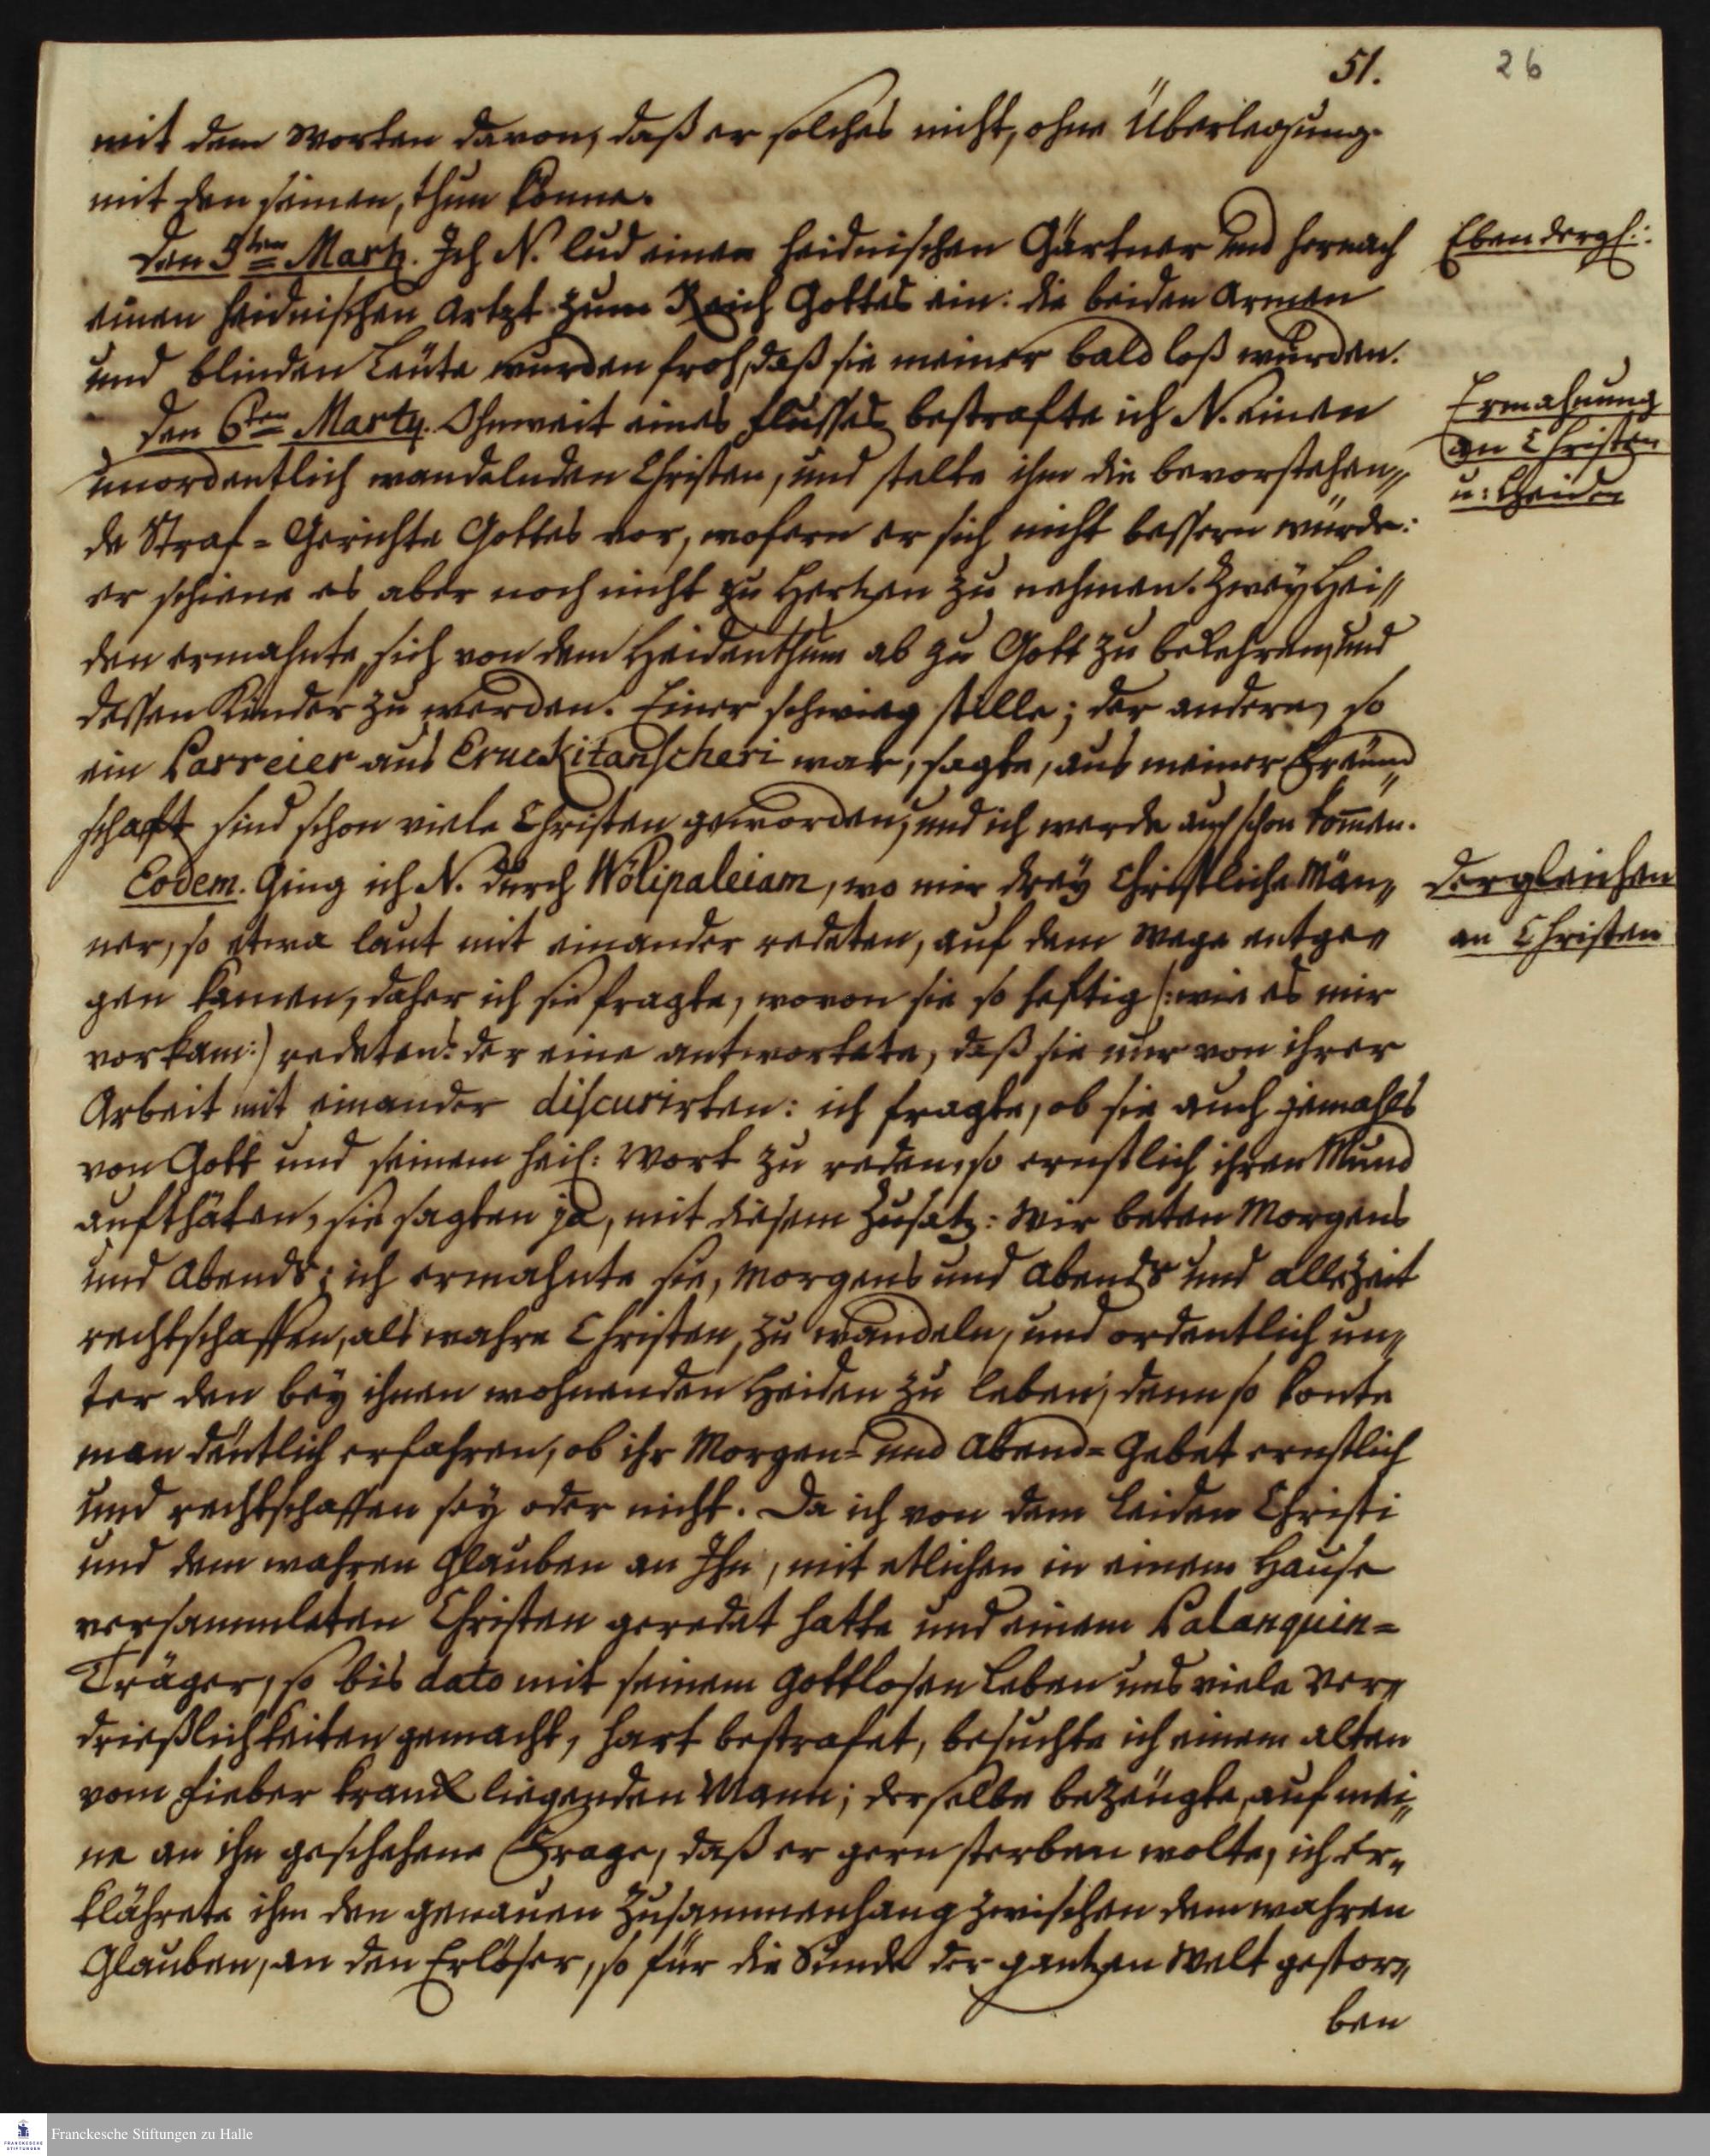 51.
26
mit dem Worten davon, daß er solches nicht, ohne Überlegung
mit den seinen, thun könne.
Den 5ten Marty. Ich N. lud einen heidnischen Gärtner und hernach
einen heidnischen Artzt zum Reich Gottes ein: die beiden Armen
und blinden Leute wurden froh, daß sie meiner bald loß wurden.
Den 6ten Marty. Ohnweit eines Flusses bestrafte ich N. einen
unordentlich wandelnden Christen, und stelte ihm die bevorstehen„
de Straf=Gerichte Gottes vor, wofern er sich nicht bessern würde:
er schiene es aber noch nicht zu Hertzen zu nehmen. Zwey Hei„
den ermahnte, sich von dem Heidenthum ab zu Gott zu bekehren, und
dessen Kinder zu werden. Einer schwieg stille; der andere, so
ein Parreier aus Eruckitanscheri war, sagte, aus meiner Freund„
schaft sind schon viele Christen geworden, und ich werde auch schon kom̄en.
Eodem. Ging ich N. durch Wölipaleiam, wo mir drey Christliche Män„
ner, so etwa laut mit einander redeten, auf dem Wege entge„
gen kamen, daher ich sie fragte, wovon sie so heftig (: wie es mir
vorkam:) redeten: der eine antwortete, daß sie nur von ihrer
Arbeit mit einander discurirten: ich fragte, ob sie auch jemahls
von Gott und seinem heil: Wort zu reden, so ernstlich ihren Mund
aufthäten, sie sagten ja, mit diesem Zusatz: Wir beten Morgens
und Abends; ich ermahnte sie, Morgens und Abends und allezeit
rechtschaffen, als wahre Christen, zu wandeln, und ordentlich un„
ter den bey ihnen wohnenden Heiden zu leben; denn so konte
man deutlich erfahren, ob ihr Morgen= und Abend=Gebet ernstlich
und rechtschaffen sey oder nicht. Da ich von dem Leiden Christi
und dem wahren Glauben an Ihn, mit etlichen in einem Hause
versammleten Christen geredet hatte und einem Palanquin=
Träger, so bis dato mit seinem gottlosen Leben uns viele Ver„
drießlichkeiten gemacht, hart bestrafet, besuchte ich einem alten
vom Fieber kranck liegenden Mann; derselbe bezeugte, auf mei„
ne an ihn geschehene Frage, daß er gern sterben wolte, ich Er„
klährete ihm den genauen Zusammenhang zwischen dem wahren
Glauben, an den Erlöser, so für die Sünde der gantzen Welt gestor„
ben
Eben dergl:.
Ermahnung
an Christen
u: Heiden
Dergleichen
an Christen
Franckesche Stiftungen zu Halle
FRANCKESCHE
STIFTUNGEN